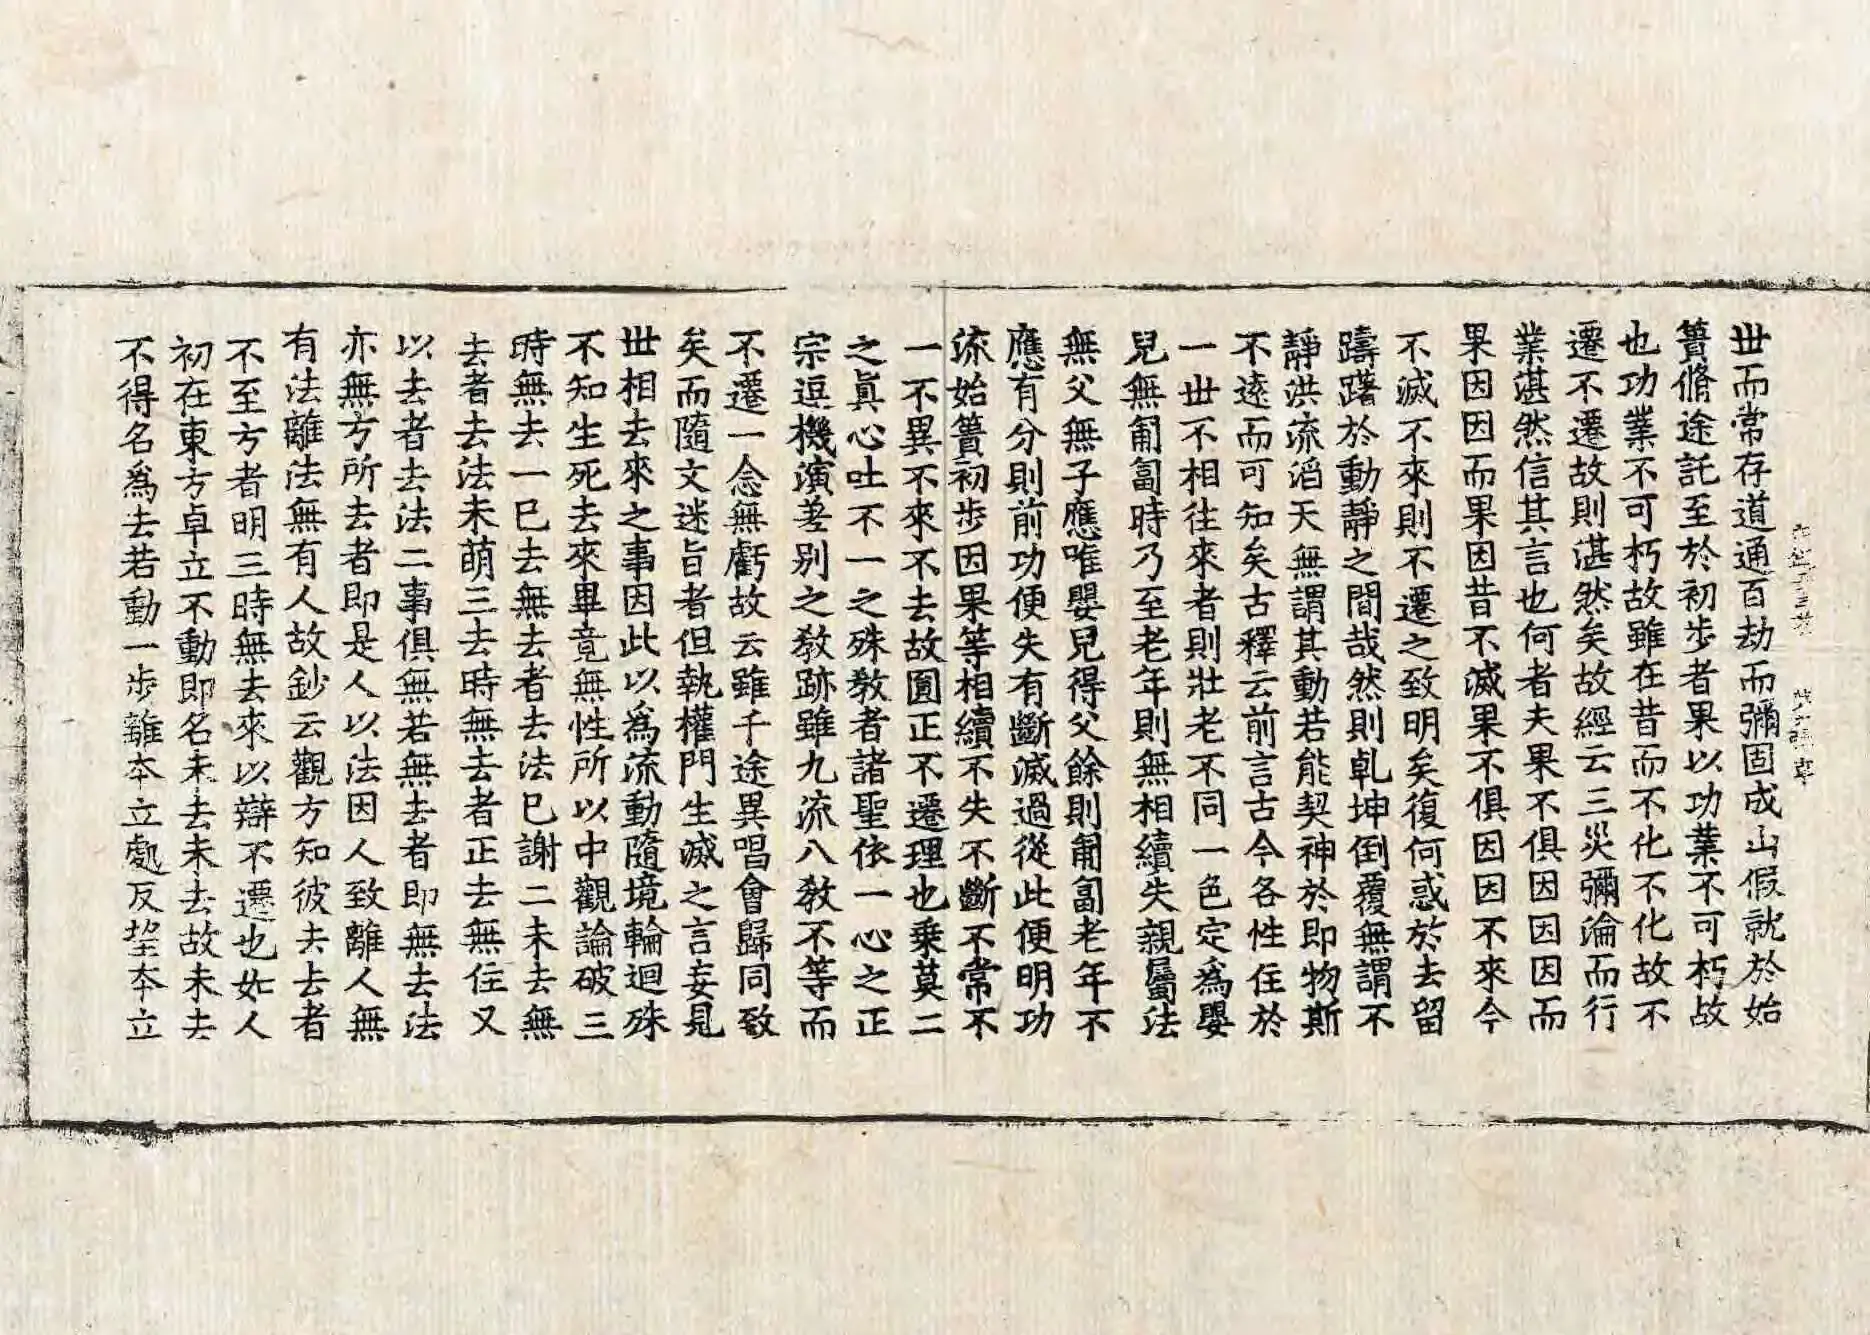 丗而常存道通百劫而彌固成山假就於始
簣脩途託至於初步者果以功業不可朽故
也功業不可朽故雖在昔而不化不化故不
遷不遷故則湛然矣故經云三災彌淪而行
業湛然信其言也何者夫果不俱因因因而
果因因而果因昔不滅果不俱因因不來今
不滅不來則不遷之致明矣復何惑於去留
躊躇於動靜之間哉然則乹坤倒覆無謂不
靜洪流滔天無謂其動若能契神於即物斯
不遠而可知矣古釋云前言古今各性住於
一丗不相往來者則壯老不同一色定為嬰
兒無匍匐時乃至老年則無相續失親屬法
無父無子應唯嬰兒得父餘則匍匐老年不
應有分則前功便失有斷滅過從此便明功
流始簣初步因果等相續不失不斷不常不
一不異不來不去故圓正不遷理也乗莫二
之眞心吐不一之殊教者諸聖依一心之正
宗逗機演差别之敎跡雖九流八敎不等而
不遷一念無虧故云雖千途異唱會歸同致
矣而隨文迷旨者但執權門生滅之言妄見
丗相去來之事因此以為流動隨境輪迴殊
不知生死去來畢竟無性所以中觀論破三
時無去一已去無去者去法已謝二未去無
去者去法未萌三去時無去者正去無住又
以去者去法二事俱無若無去者即無去法
亦無方所去者即是人以法因人致離人無
有法離法無有人故鈔云觀方知彼去去者
不至方者明三時無去來以辯不遷也如人
初在東方卓立不動即名未去未去故未去
不得名為去若動一步離夲立處反望夲立